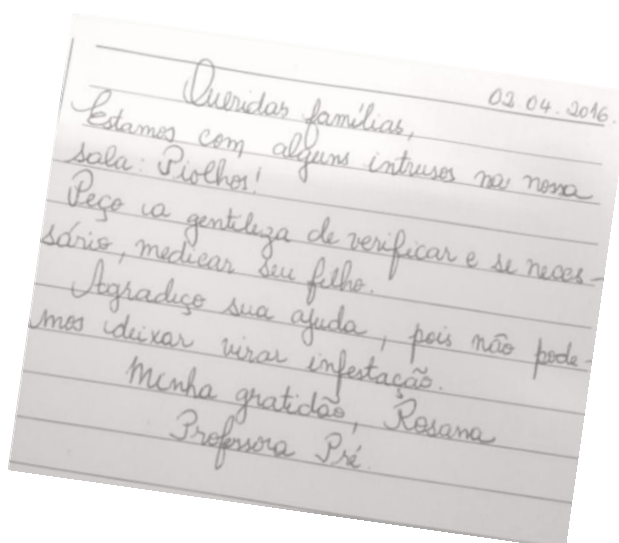 02.04.2016.
Queridas famílias,
Estamos com alguns intrusos na nossa
sala: Piolhos!
Peço a gentileza de verificar e se neces-
sário, medicar seu filho.
Agradeço sua ajuda, pois não pode-
mos deixar virar infestação.
Minha gratidão, Rosana
Professora Pré.